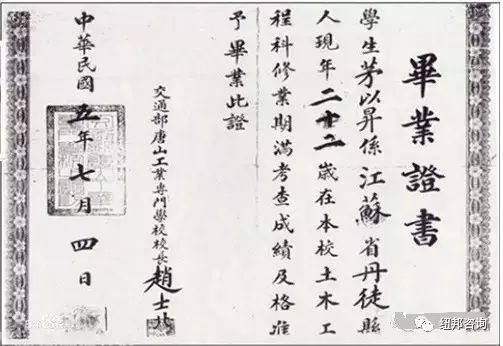 畢業證書
學生茅以昇係江蘇省丹徒縣
人現年二十二歲在本校土木工
程科修業期滿考查成績及格准
予畢業此證
交通部唐山工業專門學校校長趙士北
中華民國五年七月四日
纽邦咨询